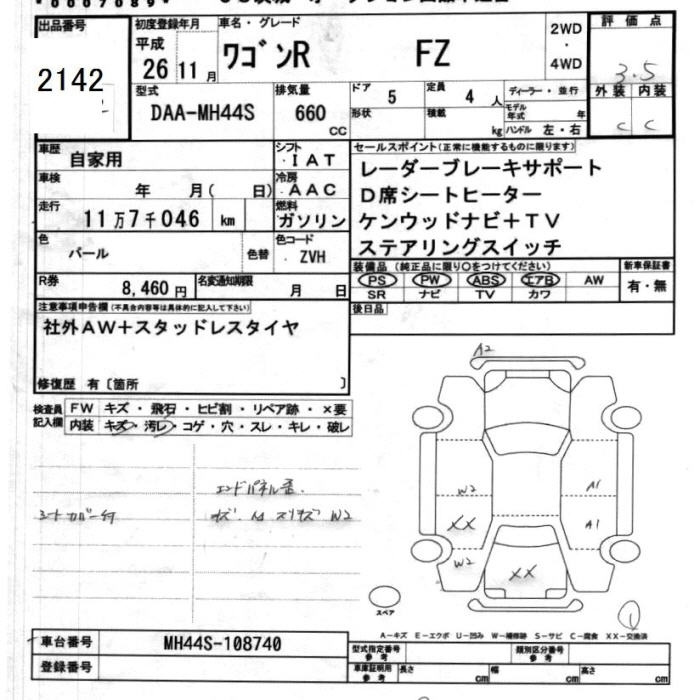 *0007089*
出品番号
2142
初度登録年月
平成 26 11 月
車名・グレード
ワゴンR FZ
2WD
・
4WD
評価点
3.5
外装 内装
C C
型式
DAA-MH44S
排気量
660 CC
ドア 5
定員 4 人
形状
積載 kg
ディーラー・並行
モデル年式 年
ハンドル 左・右
車歴 自家用
車検 年 月( 日)
走行 11万7千046 km
色 パール 色替
シフト ・IAT
冷房 ・AAC
燃料 ガソリン
色コード ・ZVH
R券 8,460円
名変通知期限 月 日
セールスポイント(正常に機能するものに限ります)
レーダーブレーキサポート
D席シートヒーター
ケンウッドナビ+TV
ステアリングスイッチ
装備品(純正品に限り○をつけてください)
PS PW ABS エアB AW
SR ナビ TV カワ
新車保証書
有・無
後日品
注意事項申告欄(不具合内容等は具体的に記入して下さい)
社外AW+スタッドレスタイヤ
修復歴 有〔箇所 〕
検査員記入欄
FW キズ・飛石・ヒビ割・リペア跡・×要
内装 キズ・汚レ・コゲ・穴・スレ・キレ・破レ
シートカバー付
エンドパネル歪
W2
A2
W2
XX
W2
XX
A1
A1
スペア
1
A-キズ E-エクボ U-凹み W-補修跡 S-サビ C-腐食 XX-交換済
車台番号 MH44S-108740
登録番号
型式指定番号 参考
類別区分番号 参考
車庫証明用 参考 長さ cm 幅 cm 高さ cm